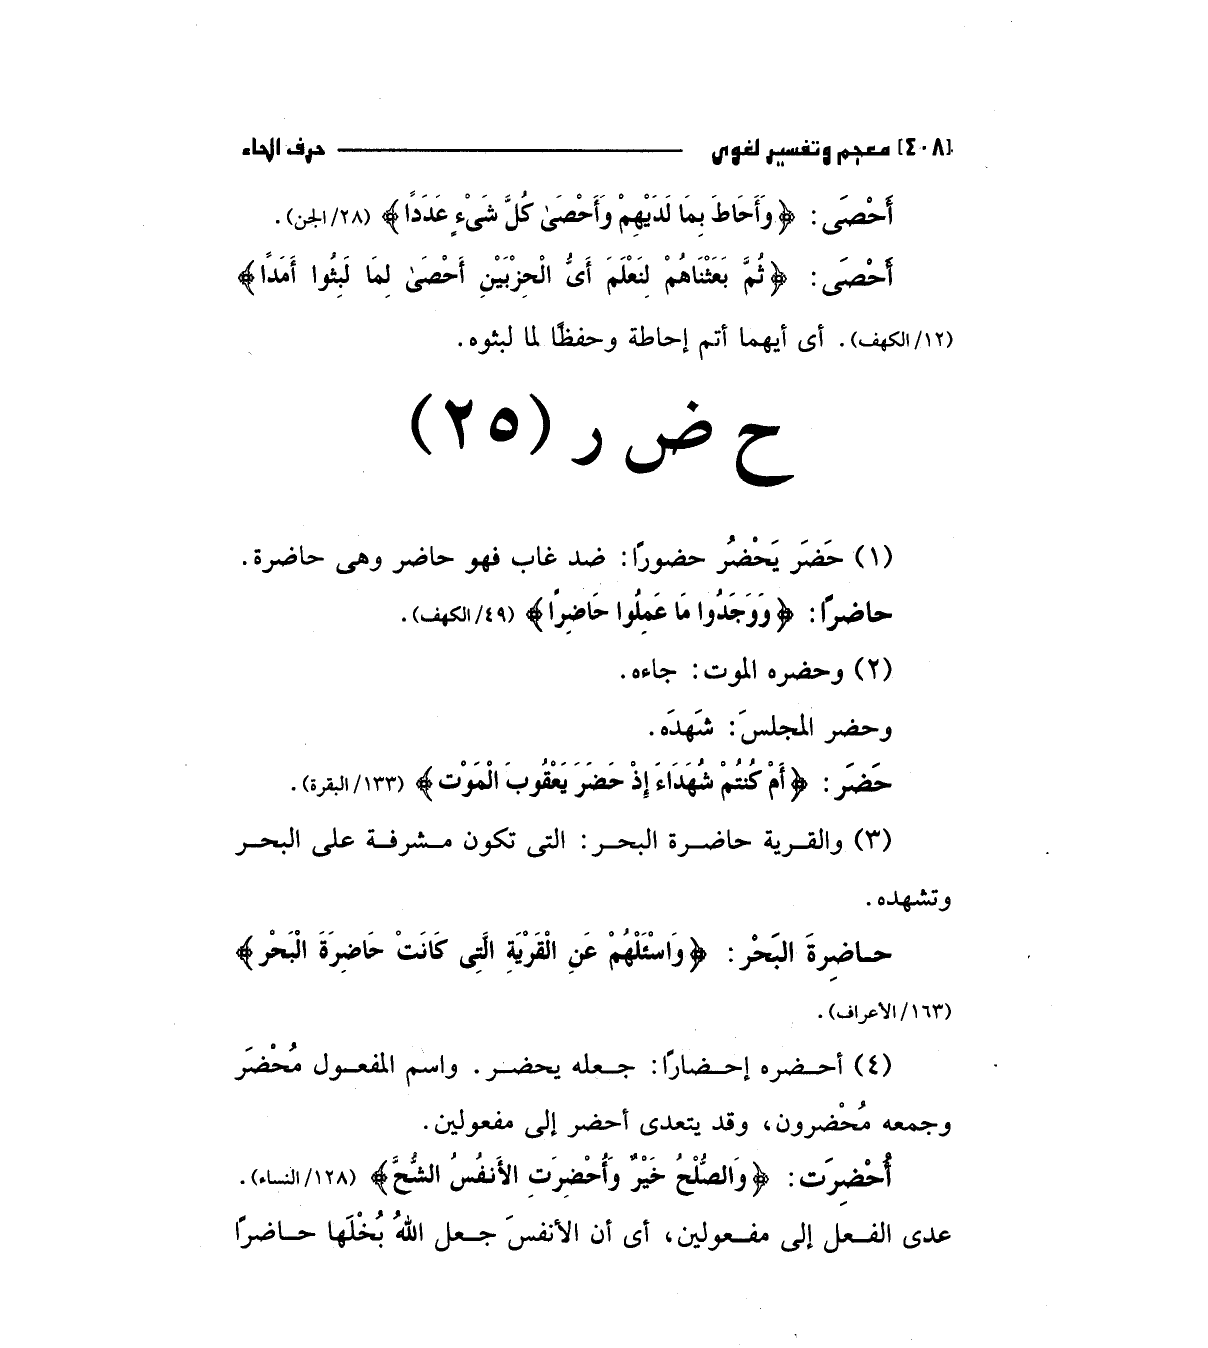 [٤٠٨] معجم وتفسير لغوى ــــــــــ حرف الحاء
أَحْصَى: ﴿وَأَحَاطَ بِمَا لَدَيْهِمْ وَأَحْصَىٰ كُلَّ شَىْءٍ عَدَدًا﴾ (٢٨/الجن).
أَحْصَى: ﴿ثُمَّ بَعَثْنَاهُمْ لِنَعْلَمَ أَىُّ الْحِزْبَيْنِ أَحْصَىٰ لِمَا لَبِثُوا أَمَدًا﴾
(١٢/الكهف). أى أيهما أتم إحاطة وحفظًا لما لبثوه.
ح ض ر (٢٥)
(١) حَضَرَ يَحْضُرُ حضورًا: ضد غاب فهو حاضر وهى حاضرة.
حاضرًا: ﴿وَوَجَدُوا مَا عَمِلُوا حَاضِرًا﴾ (٤٩/الكهف).
(٢) وحضره الموت: جاءه.
وحضر المجلسَ: شَهِدَه.
حَضَر: ﴿أَمْ كُنتُمْ شُهَدَاءَ إِذْ حَضَرَ يَعْقُوبَ الْمَوْت﴾ (١٣٣/البقرة).
(٣) والقرية حاضرة البحر: التى تكون مشرفة على البحر
وتشهده.
حاضِرةَ البَحْر: ﴿وَاسْئَلْهُمْ عَنِ الْقَرْيَةِ الَّتِى كَانَتْ حَاضِرَةَ الْبَحْرِ﴾
(١٦٣/الأعراف).
(٤) أحضره إحضارًا: جعله يحضر. واسم المفعول مُحْضَر
وجمعه مُحْضرون، وقد يتعدى أحضر إلى مفعولين.
أُحْضِرَت: ﴿وَالصُّلْحُ خَيْرٌ وَأُحْضِرَتِ الأَنفُسُ الشُّحَّ﴾ (١٢٨/النساء).
عدى الفعل إلى مفعولين، أى أن الأنفسَ جعل اللهُ بُخْلَها حاضرًا